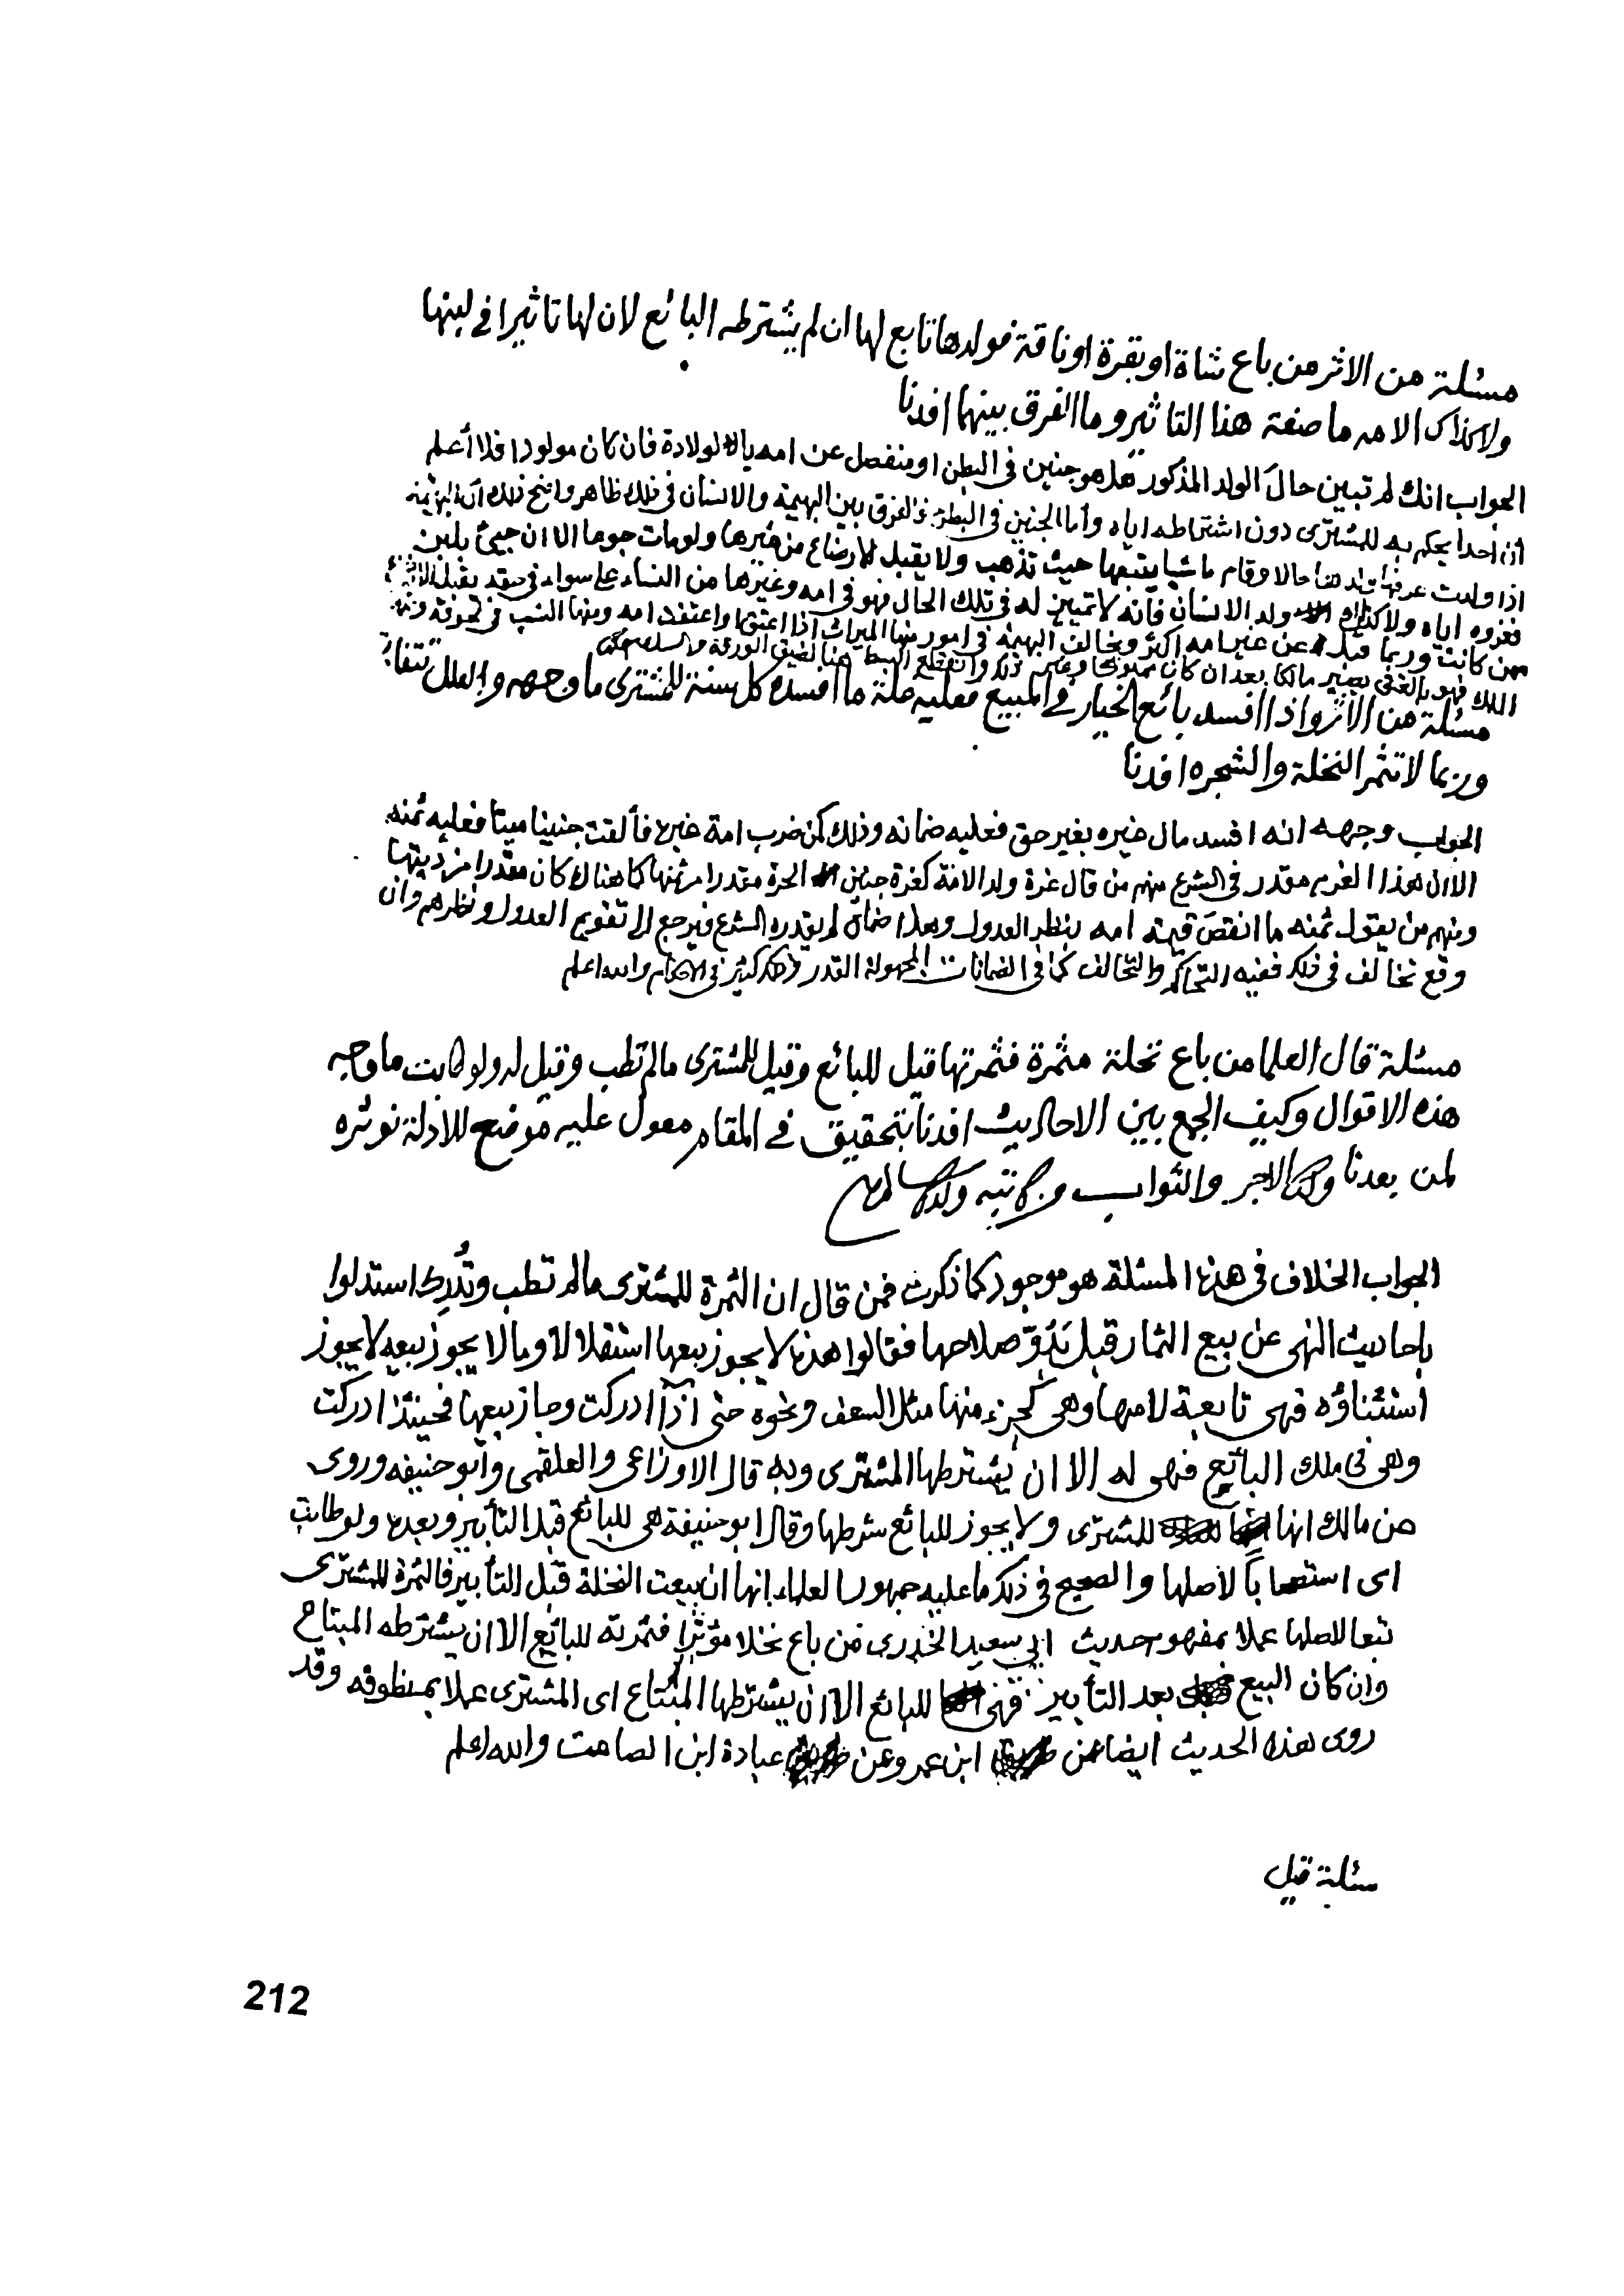 مسئلة من الاثر من باع شاة او بقرة او ناقة فولدها تابع لها ان لم يشترطه البائع لان لها تاثيرا في لبنها
ولا كذلك الامه ما صفة هذا التاثير وما الفرق بينهما افدنا
الجواب انك لم تبين حال الولد المذكور هل هو جنين في البطن او منفصل عن امه بالولادة فان كان مولودا فلا أعلم
ان احدا يحكم به للمشتري دون اشتراطه اياه وأما الجنين في البطن فالفرق بين البهيمة والانسان في ذلك ظاهر
اذا ولدت حالا وقام ماشيا يتبعها حيث تذهب ولا يقبل الارضاع من غيرها ولو مات جوعا الا ان جيئ بلبن
فغزوه اياه ولا كذلك ولد الانسان فانه لا تمييز له في تلك الحال فهو في امه وغيرها من النساء على سواء
ممن كانت وربما قبل عن غير امه اكثر ويخالف البهيمة في امور منها الميراث اذا اعتقها واعتقت امه ومنها النسب
مسئلة من الأثر واذا أفسد بائع الخيار في المبيع فعليه غلة ما افسده كل سنة للمشتري ما وجهه والغلل
وربما لا تثمر النخلة والشجره افدنا
الجواب وجهه انه افسد مال غيره بغير حق فعليه ضمانه وذلك كمن ضرب امة غيره فألقت جنينا ميتا فعليه ثمنه
الا ان هذا الغرم مقدر في الشرع منهم من قال غرة ولد الامة كغرة جنين الحرة مقدرا من ثمنها كما هناك كان مقدرا من ديتها
ومنهم من يقول ثمنه ما انقص قيمة امه بنظر العدول وهذا ضمان لم يقدره الشرع فيرجع الى تقويم العدول ونظرهم وان
وقع تخالف في ذلك ففيه التحاكم والتحالف كما في الضمانات المجهولة القدر وهو كثير في الاحكام والله اعلم
مسئلة قال العلما من باع نخلة مثمرة فثمرتها قيل للبائع وقيل للمشتري مالم تطب وقيل له ولو طابت ما وجه
هذه الاقوال وكيف الجمع بين الاحاديث افدنا بتحقيق في المقام معول عليه موضح للادلة نوثره
لمن بعدنا ولك الاجر والثواب
الجواب الخلاف في هذه المسئلة هو موجود كما ذكرت فمن قال ان الثمرة للمشتري مالم تطب وتُدرك استدلوا
باحاديث النهي عن بيع الثمار قبل بدوّ صلاحها فقالوا هذه لا يجوز بيعها استقلالا وما لا يجوز بيعه لا يجوز
استثناؤه فهي تابعة لامها وهي كجزء منها مثل السعف ونحوه حتى اذا ادركت وجاز بيعها فحينئذ ادركت
وهو في ملك البائع فهي له الا ان يشترطها المشتري وبه قال الاوزاعي والعلقمي وأبو حنيفه وروى
عن مالك انها للمشتري ولا يجوز للبائع شرطها وقال ابو حنيفة هي للبائع قبل التأبير وبعده ولو طابت
اى استصحاباً لاصلها والصحيح في ذلك ما عليه جمهور العلماء انها ان بيعت النخلة قبل التأبير فالثمرة للمشتري
تبعا لاصلها عملا بمفهوم حديث ابي سعيد الخدري من باع نخلا مؤبرا فثمرته للبائع الا ان يشترطه المبتاع
وان كان البيع بعد التأبير فهي للبائع الا ان يشترطها المبتاع اى المشتري عملا بمنطوقه وقد
روى هذا الحديث ايضا عن ابن عمر وعن عبادة ابن الصامت والله اعلم
مسئلة قيل
212